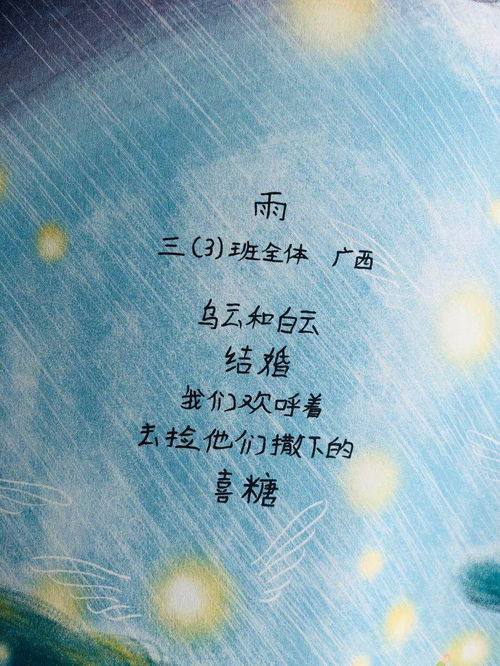 雨
三(3)班全体 广西
乌云和白云
结婚
我们欢呼着
去捡他们撒下的
喜糖